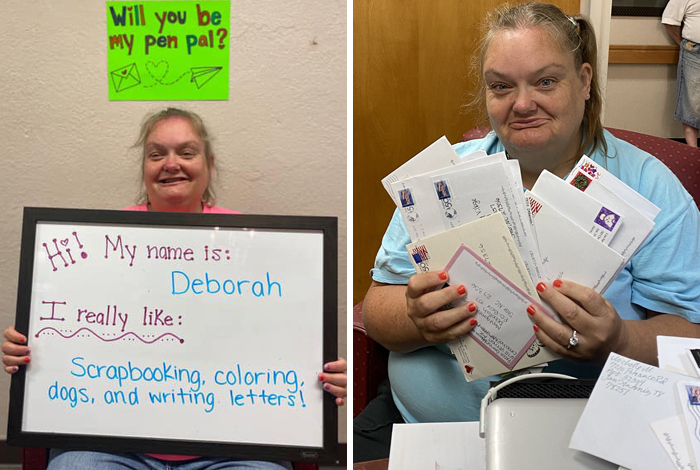 Will you be
my pen pal?
Hi! My name is:
Deborah
I really like:
Scrapbooking, coloring,
dogs, and writing letters!
San Antonio, TX